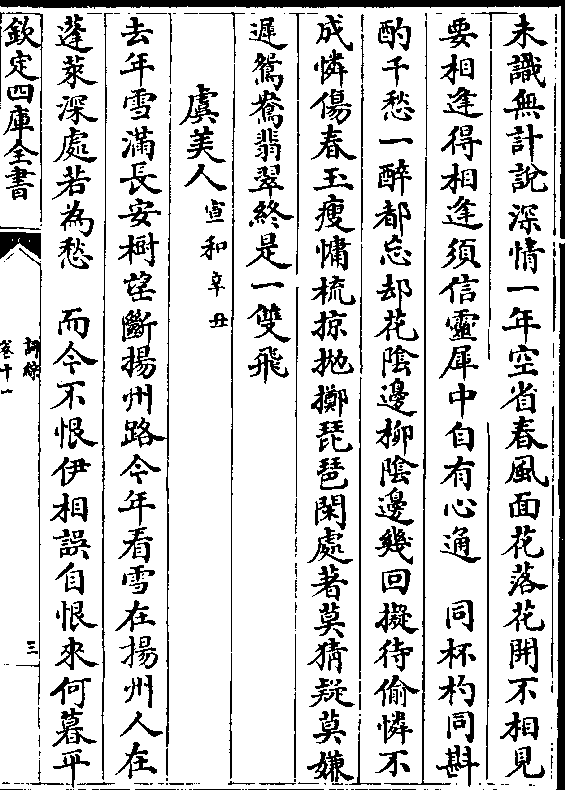 未識無計說深情一年空省春風面花落花開不相見
要相逢得相逢須信靈犀中自有心通　同杯杓同斟
酌千愁一醉都忘却花陰邊柳陰邊幾回擬待偷憐不
成憐傷春玉瘦慵梳掠拋擲琵琶閑處著莫猜疑莫嫌
遲鴛鴦翡翠終是一雙飛
虞美人宣和辛丑
去年雪滿長安樹望斷揚州路今年看雪在揚州人在
蓬萊深處若為愁　而今不恨伊相誤自恨來何暮平
欽定四庫全書
詞綜
卷十一
三